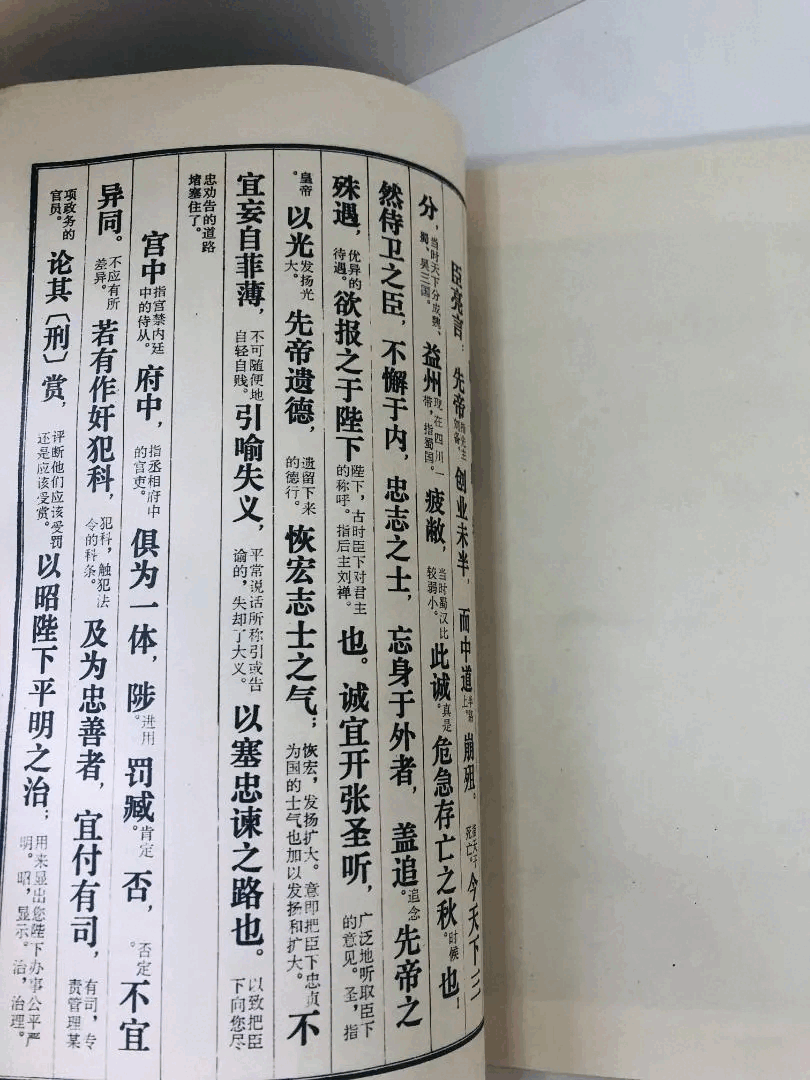 臣亮言：先帝指先主刘备。创业未半，而中道半路上。崩殂。指天子死亡。今天下三
分，当时天下分成魏、蜀、吴三国。益州现在四川一带，指蜀国。疲敝，当时蜀汉比较弱小。此诚真是危急存亡之秋时候。也！
然侍卫之臣，不懈于内，忠志之士，忘身于外者，盖追追念。先帝之
殊遇，优异的待遇。欲报之于陛下陛下，古时臣下对君主的称呼。指后主刘禅。也。诚宜开张圣听，广泛地听取臣下的意见。圣，指
皇帝。以光发扬光大。先帝遗德，遗留下来的德行。恢宏志士之气；恢宏，发扬扩大。意即把臣下忠贞为国的士气也加以发扬和扩大。不
宜妄自菲薄，不可随便地自轻自贱。引喻失义，平常说话所称引或告谕的，失却了大义。以塞忠谏之路也。以致把臣下向您尽
忠劝告的道路堵塞住了。
宫中指宫禁内廷中的侍从。府中，指丞相府中的官吏。俱为一体，陟进用。罚臧肯定。否，否定。不宜
异同。不应有所差异。若有作奸犯科，犯科，触犯法令的科条。及为忠善者，宜付有司，有司，专责管理某
项政务的官员。论其〔刑〕赏，评断他们应该受罚还是应该受赏。以昭陛下平明之治；用来显出您陛下办事公平严明。昭，显示。治，治理。